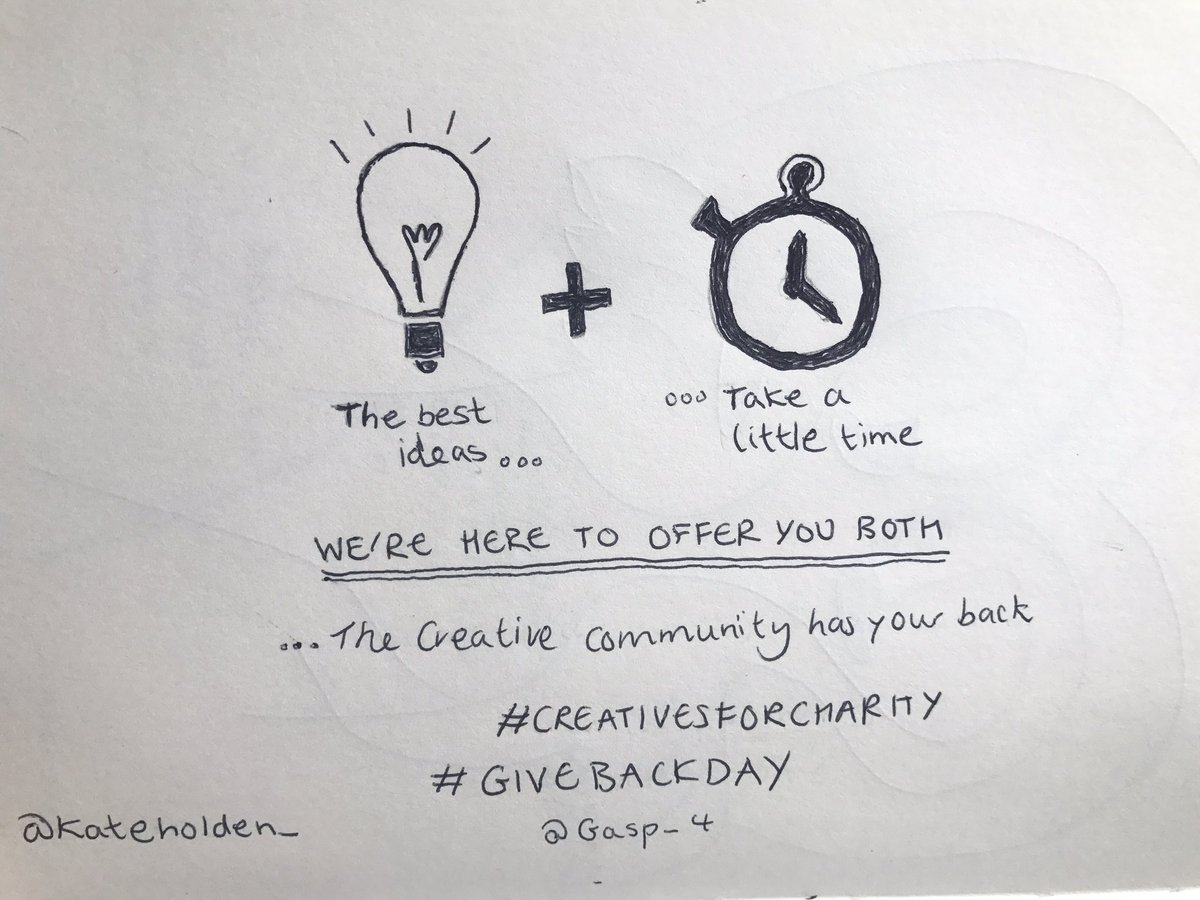 The best
ideas...
... Take a
little time
WE'RE HERE TO OFFER YOU BOTH
...The Creative community has your back
#CREATIVESFORCHARITY
# GIVEBACKDAY
@Kateholden_
@Gasp_4